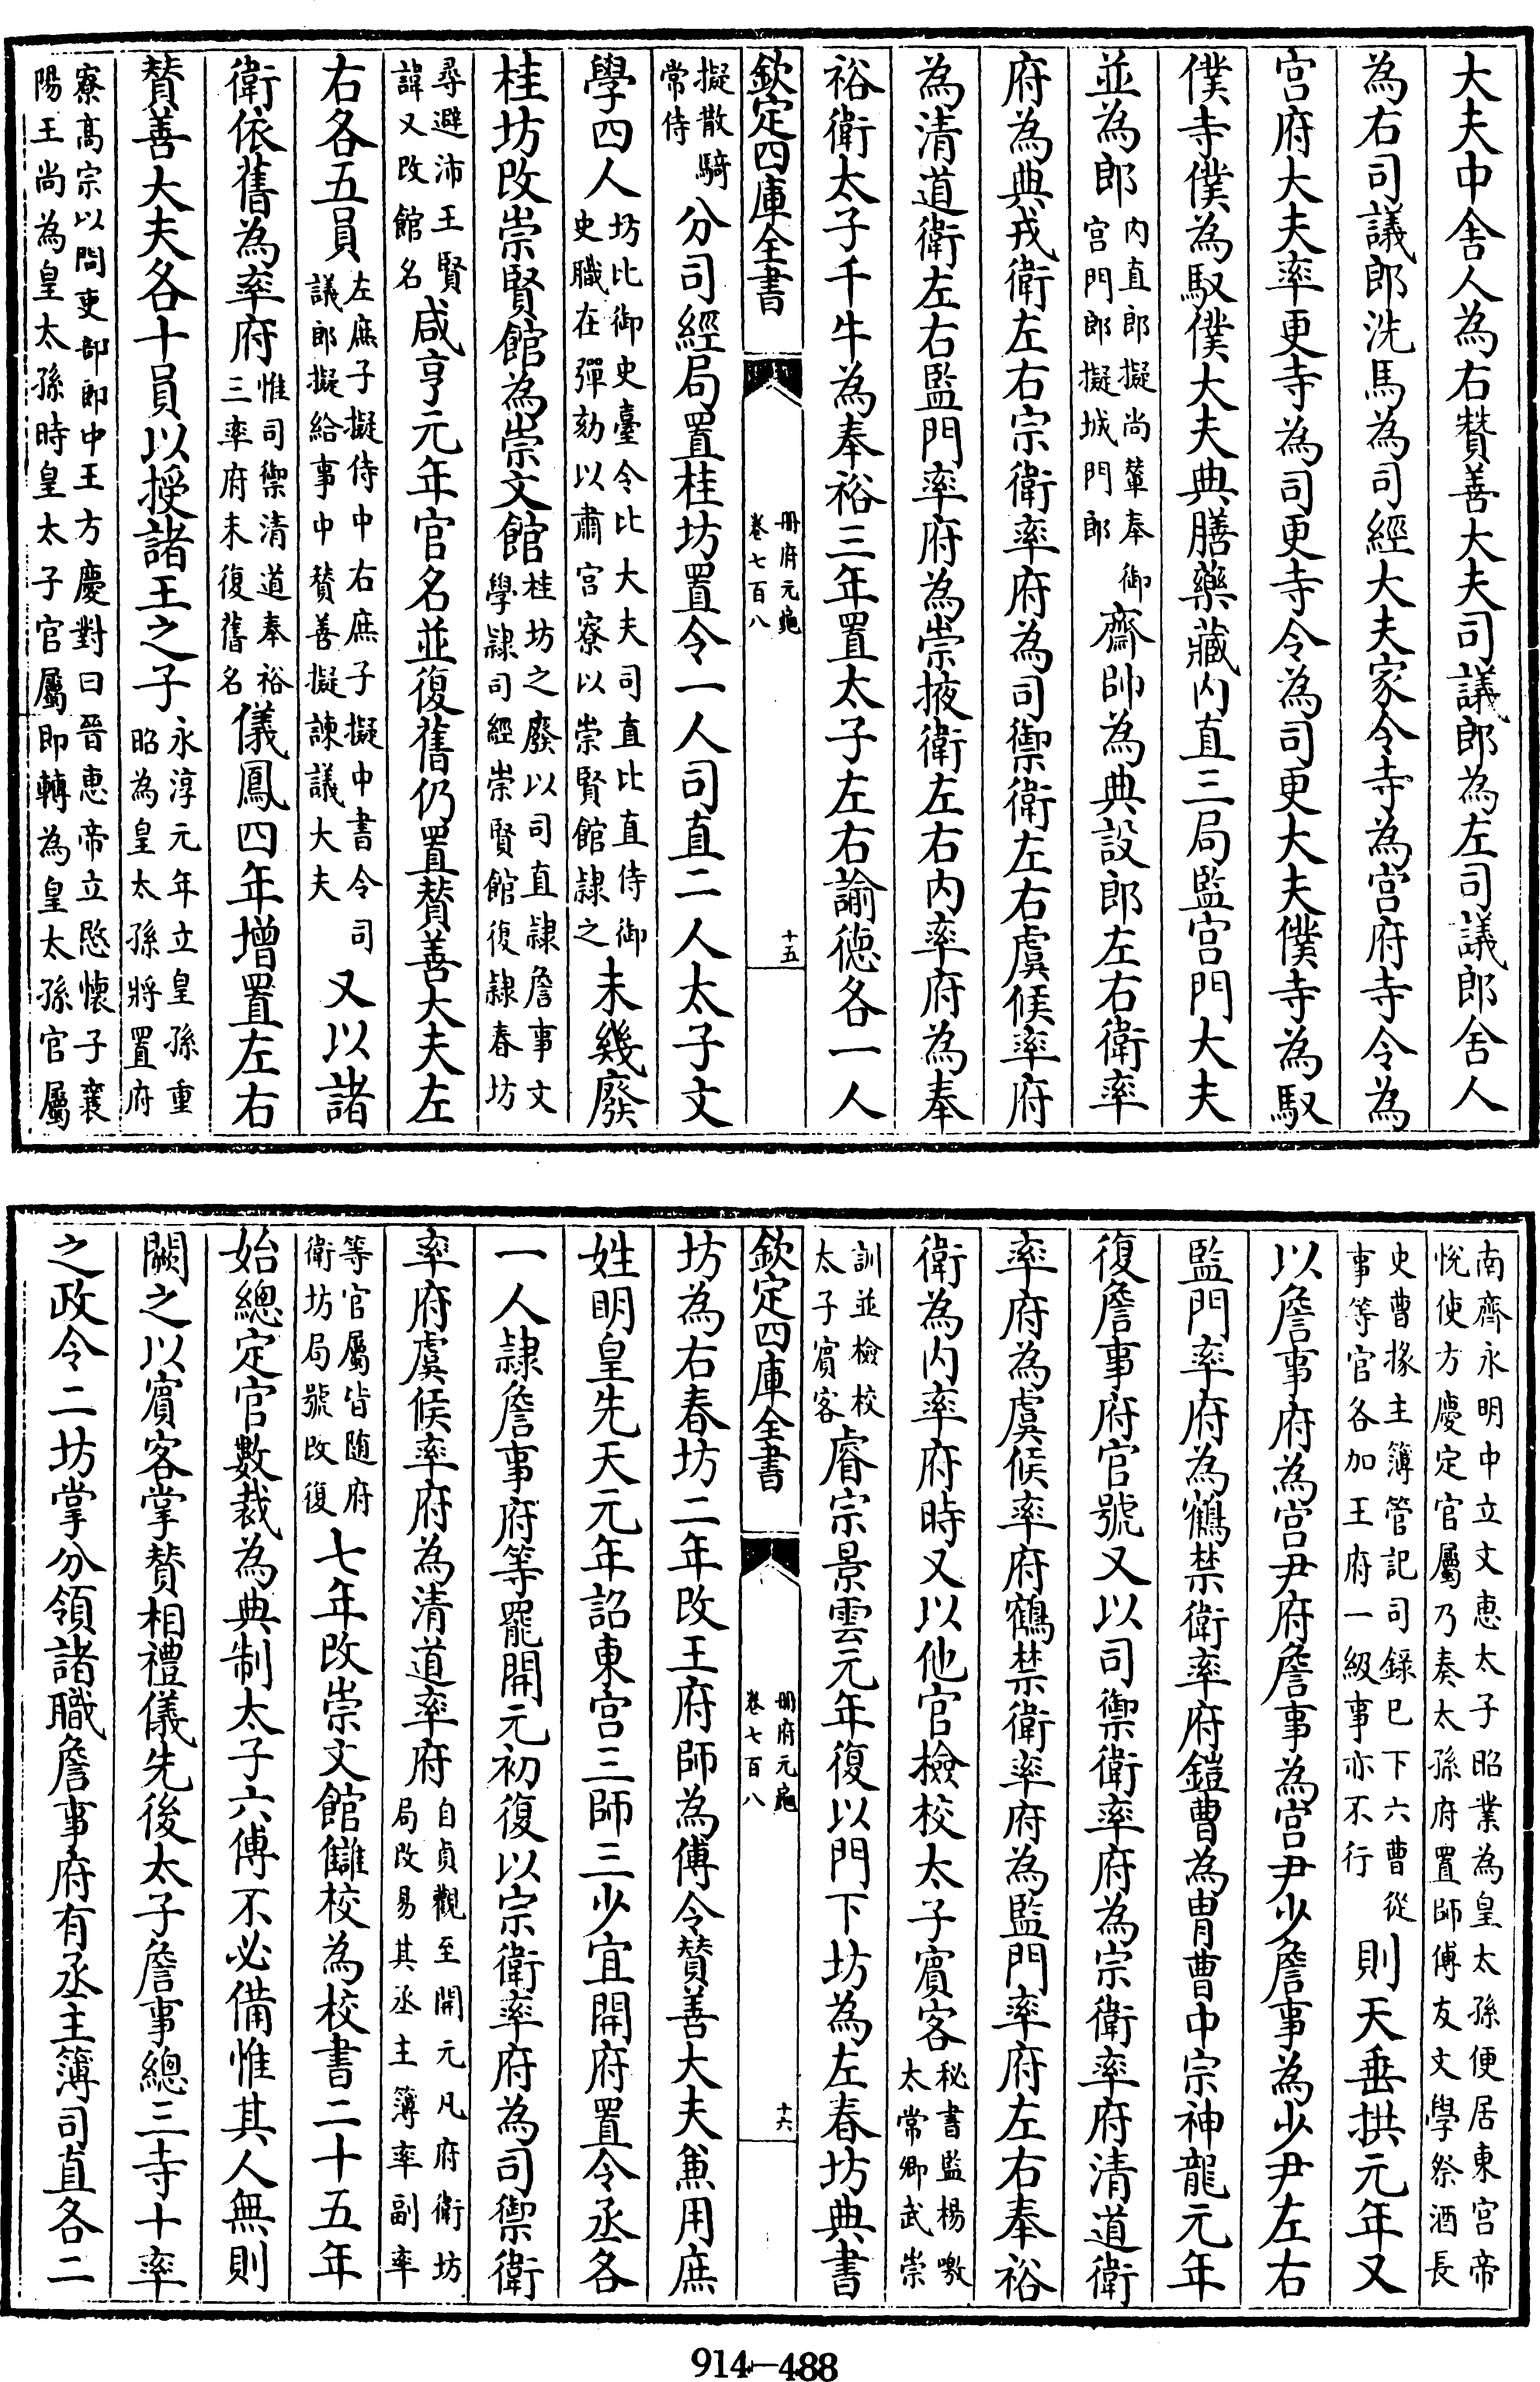 大夫中舍人為右贊善大夫司議郎為左司議郎舍人
為右司議郎洗馬為司經大夫家令寺為宫府寺令為
宫府大夫率更寺為司更寺令為司更大夫僕寺為馭
僕寺僕為馭僕大夫典膳藥藏内直三局監宫門大夫
並為郎内直郎擬尚輦奉御
宫門郎擬城門郎齋帥為典設郎左右衛率
府為典戎衛左右宗衛率府為司禦衛左右虞候率府
為清道衛左右監門率府為崇掖衛左右内率府為奉
裕衛太子千牛為奉裕三年置太子左右諭徳各一人
欽定四庫全書
冊府元龜
卷七百八
十五
擬散騎
常侍分司經局置桂坊置令一人司直二人太子文
學四人坊比御史臺令比大夫司直比直侍御
史職在彈劾以肅宫寮以崇賢館隷之未幾廢
桂坊改崇賢館為崇文館桂坊之廢以司直隷詹事文
學隷司經崇賢館復隷春坊
尋避沛王賢
諱又改館名咸亨元年官名並復舊仍置贊善大夫左
右各五員左庶子擬侍中右庶子擬中書令司
議郎擬給事中贊善擬諫議大夫又以諸
衛依舊為率府惟司禦清道奉裕
三率府未復舊名儀鳳四年增置左右
贊善大夫各十員以授諸王之子永淳元年立皇孫重
昭為皇太孫將置府
寮高宗以問吏部郎中王方慶對曰晉惠帝立愍懷子襄
陽王尚為皇太孫時皇太子官屬即轉為皇太孫官屬
南齊永明中立文惠太子昭業為皇太孫便居東宫帝
悅使方慶定官屬乃奏太孫府置師傅友文學祭酒長
史曹掾主簿管記司錄已下六曹從
事等官各加王府一級事亦不行則天垂拱元年又
以詹事府為宫尹府詹事為宫尹少詹事為少尹左右
監門率府為鶴禁衛率府鎧曹為胄曹中宗神龍元年
復詹事府官號又以司禦衛率府為宗衛率府清道衛
率府為虞候率府鶴禁衛率府為監門率府左右奉裕
衛為内率府時又以他官檢校太子賓客秘書監楊璬
太常卿武崇
訓並檢校
太子賓客睿宗景雲元年復以門下坊為左春坊典書
欽定四庫全書
冊府元龜
卷七百八
十六
坊為右春坊二年改王府師為傅令贊善大夫兼用庶
姓明皇先天元年詔東宫三師三少宜開府置令丞各
一人隷詹事府等罷開元初復以宗衛率府為司禦衛
率府虞候率府為清道率府自貞觀至開元凡府衛坊
局改易其丞主簿率副率
等官屬皆随府
衛坊局號改復七年改崇文館讎校為校書二十五年
始總定官數裁為典制太子六傅不必備惟其人無則
闕之以賓客掌贊相禮儀先後太子詹事總三寺十率
之政令二坊掌分領諸職詹事府有丞主簿司直各二
914-488